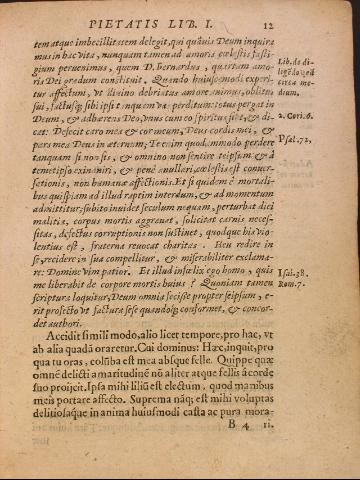 PIETATIS LIB. I. 12
tem atque imbecillitatem delegit, qui quãuis Deum inquira
mus in hac vita, nunquam tamen ad amoris cœlestis fasti-
gium peruenimus, quem D. Bernardus, quartum amo-
ris Dei gradum constituit. Quando huiusmodi experi-
tur affectum, vt diuino debriatus amore animus, oblitus
sui, factusq; sibi ipsi tanquam vas perditum: totus pergat in
Deum, & adhærens Deo, vnus cum eo spiritus fiat, & di-
cat: Defecit caro mea & cor meum, Deus cordis mei, &
pars mea Deus in æternum; Te enim quodammodo perdere
tanquam si non sis, & omnino non sentire teipsum & à
temetipso exinaniri, & penè annullari, cœlestis est conuer-
sationis, non humanæ affectionis. Et si quidem è mortali-
bus quispiam ad illud raptim interdum, & ad momentum
admittitur, subitò inuidet seculum nequam, perturbat diei
malitia, corpus mortis aggrauat, solicitat carnis neces-
sitas, defectus corruptionis non sustinet, quodque his vio-
lentius est, fraterna reuocat charitas. Heu redire in
se, recidere in sua compellitur, & miserabiliter exclama-
re: Domine vim patior. Et illud infœlix ego homo, quis
me liberabit de corpore mortis huius? Quoniam tamen
scriptura loquitur, Deum omnia fecisse propter seipsum, e-
rit profectò vt factura sese quandoq; conformet, & concor-
det authori.
Lib. de di-
ligẽdo
circa me-
dium.
2. Cori. 6.
Psal. 72.
Isai. 38.
Rom. 7.
Accidit simili modo, alio licet tempore, pro hac, vt
ab alia quadã oraretur. Cui dominus: Hæc, inquit, pro
qua tu oras, colũba est mea absque felle. Quippe quæ
omnẽ delicti amaritudinẽ nõ aliter atque fellis à corde
suo proijcit. Ipsa mihi liliũ est electum, quod manibus
meis portare affecto. Suprema nãq; est mihi voluptas
delitiosaque in anima huiusmodi casta ac pura mora-
B 4 ri.